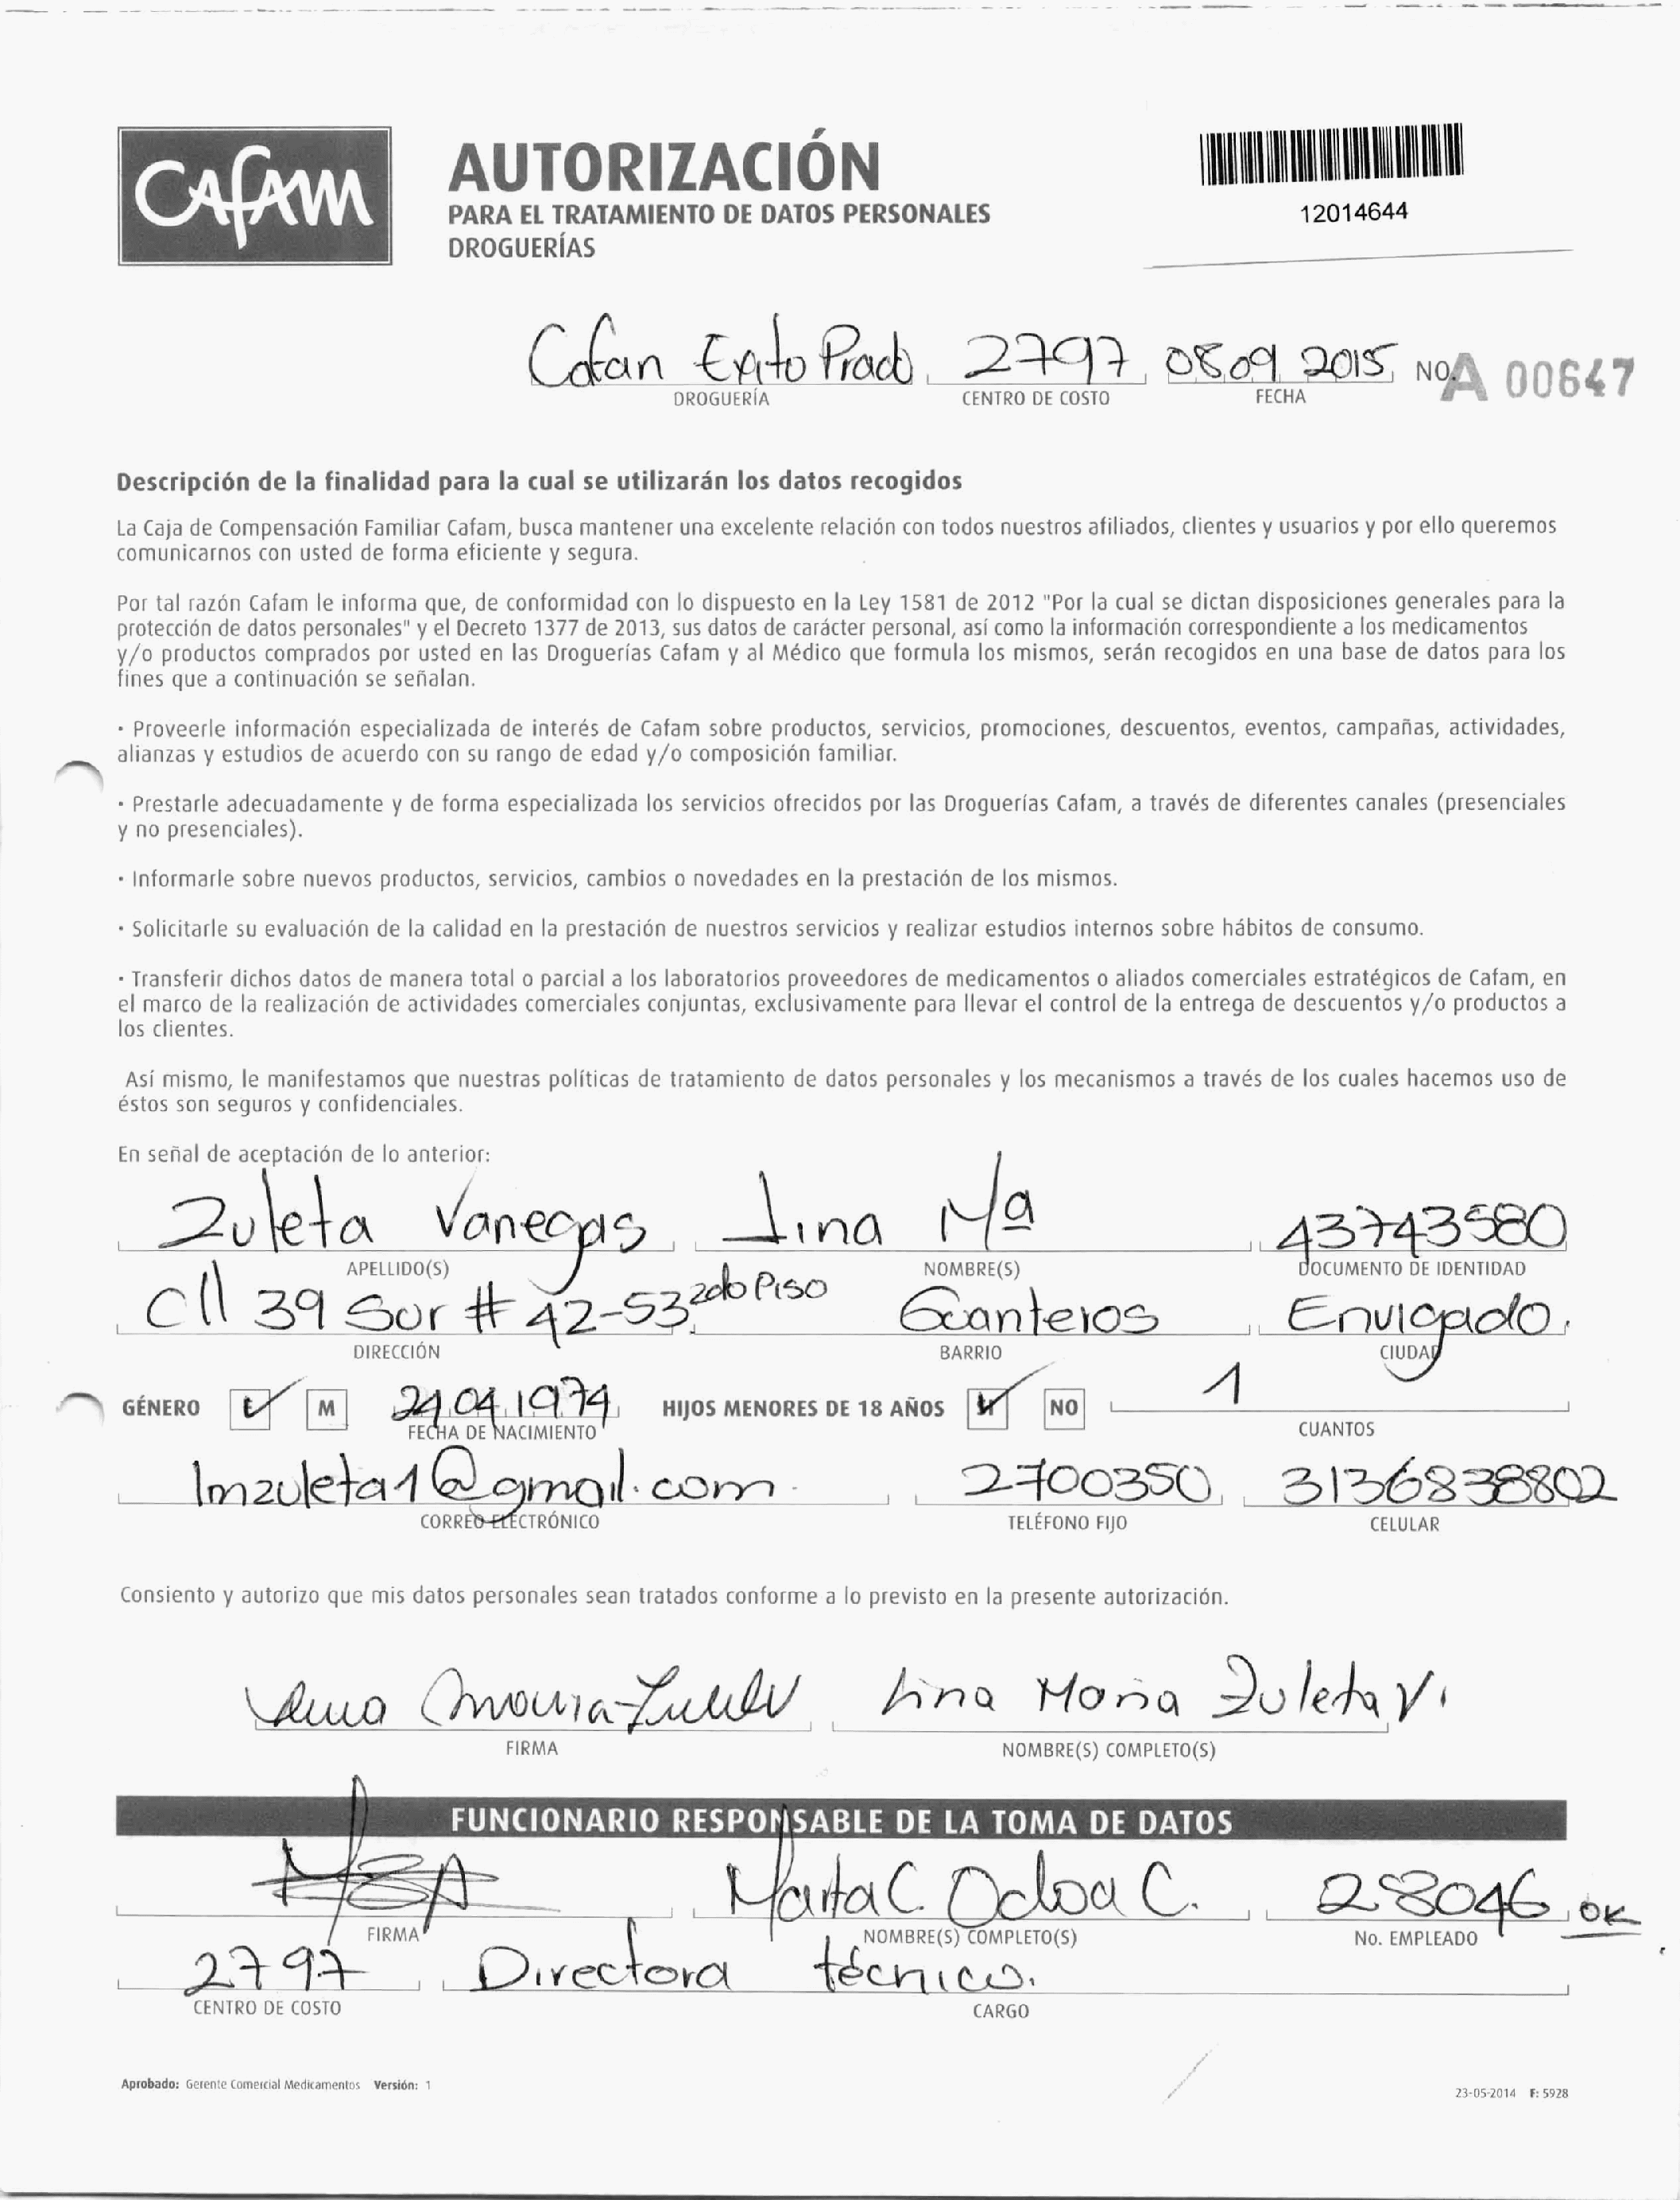 CAFAM
AUTORIZACIÓN
PARA EL TRATAMIENTO DE DATOS PERSONALES
DROGUERÍAS
12014644
Cafan Exito Prado 2797 08 09 2015 NO. A 00647
DROGUERÍA CENTRO DE COSTO FECHA
Descripción de la finalidad para la cual se utilizarán los datos recogidos
La Caja de Compensación Familiar Cafam, busca mantener una excelente relación con todos nuestros afiliados, clientes y usuarios y por ello queremos
comunicarnos con usted de forma eficiente y segura.
Por tal razón Cafam le informa que, de conformidad con lo dispuesto en la Ley 1581 de 2012 "Por la cual se dictan disposiciones generales para la
protección de datos personales" y el Decreto 1377 de 2013, sus datos de carácter personal, así como la información correspondiente a los medicamentos
y/o productos comprados por usted en las Droguerías Cafam y al Médico que formula los mismos, serán recogidos en una base de datos para los
fines que a continuación se señalan.
· Proveerle información especializada de interés de Cafam sobre productos, servicios, promociones, descuentos, eventos, campañas, actividades,
alianzas y estudios de acuerdo con su rango de edad y/o composición familiar.
· Prestarle adecuadamente y de forma especializada los servicios ofrecidos por las Droguerías Cafam, a través de diferentes canales (presenciales
y no presenciales).
· Informarle sobre nuevos productos, servicios, cambios o novedades en la prestación de los mismos.
· Solicitarle su evaluación de la calidad en la prestación de nuestros servicios y realizar estudios internos sobre hábitos de consumo.
· Transferir dichos datos de manera total o parcial a los laboratorios proveedores de medicamentos o aliados comerciales estratégicos de Cafam, en
el marco de la realización de actividades comerciales conjuntas, exclusivamente para llevar el control de la entrega de descuentos y/o productos a
los clientes.
Así mismo, le manifestamos que nuestras políticas de tratamiento de datos personales y los mecanismos a través de los cuales hacemos uso de
éstos son seguros y confidenciales.
En señal de aceptación de lo anterior:
Zuleta Vanegas Lina Mª 43743580
APELLIDO(S) NOMBRE(S) DOCUMENTO DE IDENTIDAD
Cll 39 Sur # 42-53 2do Piso Envigado.
DIRECCIÓN BARRIO CIUDAD
GÉNERO M 04 1974 HIJOS MENORES DE 18 AÑOS NO 1
FECHA DE NACIMIENTO CUANTOS
lmzuleta1@gmail.com 2700350 3136838802
CORREO ELECTRÓNICO TELÉFONO FIJO CELULAR
Consiento y autorizo que mis datos personales sean tratados conforme a lo previsto en la presente autorización.
Lina Maria Zuleta V.
FIRMA NOMBRE(S) COMPLETO(S)
FUNCIONARIO RESPONSABLE DE LA TOMA DE DATOS
Marta C. Ochoa C. 28046 OK
FIRMA NOMBRE(S) COMPLETO(S) No. EMPLEADO
2797 Directora técnica.
CENTRO DE COSTO CARGO
Aprobado: Gerente Comercial Medicamentos Versión: 1
23-05-2014 F: 5928